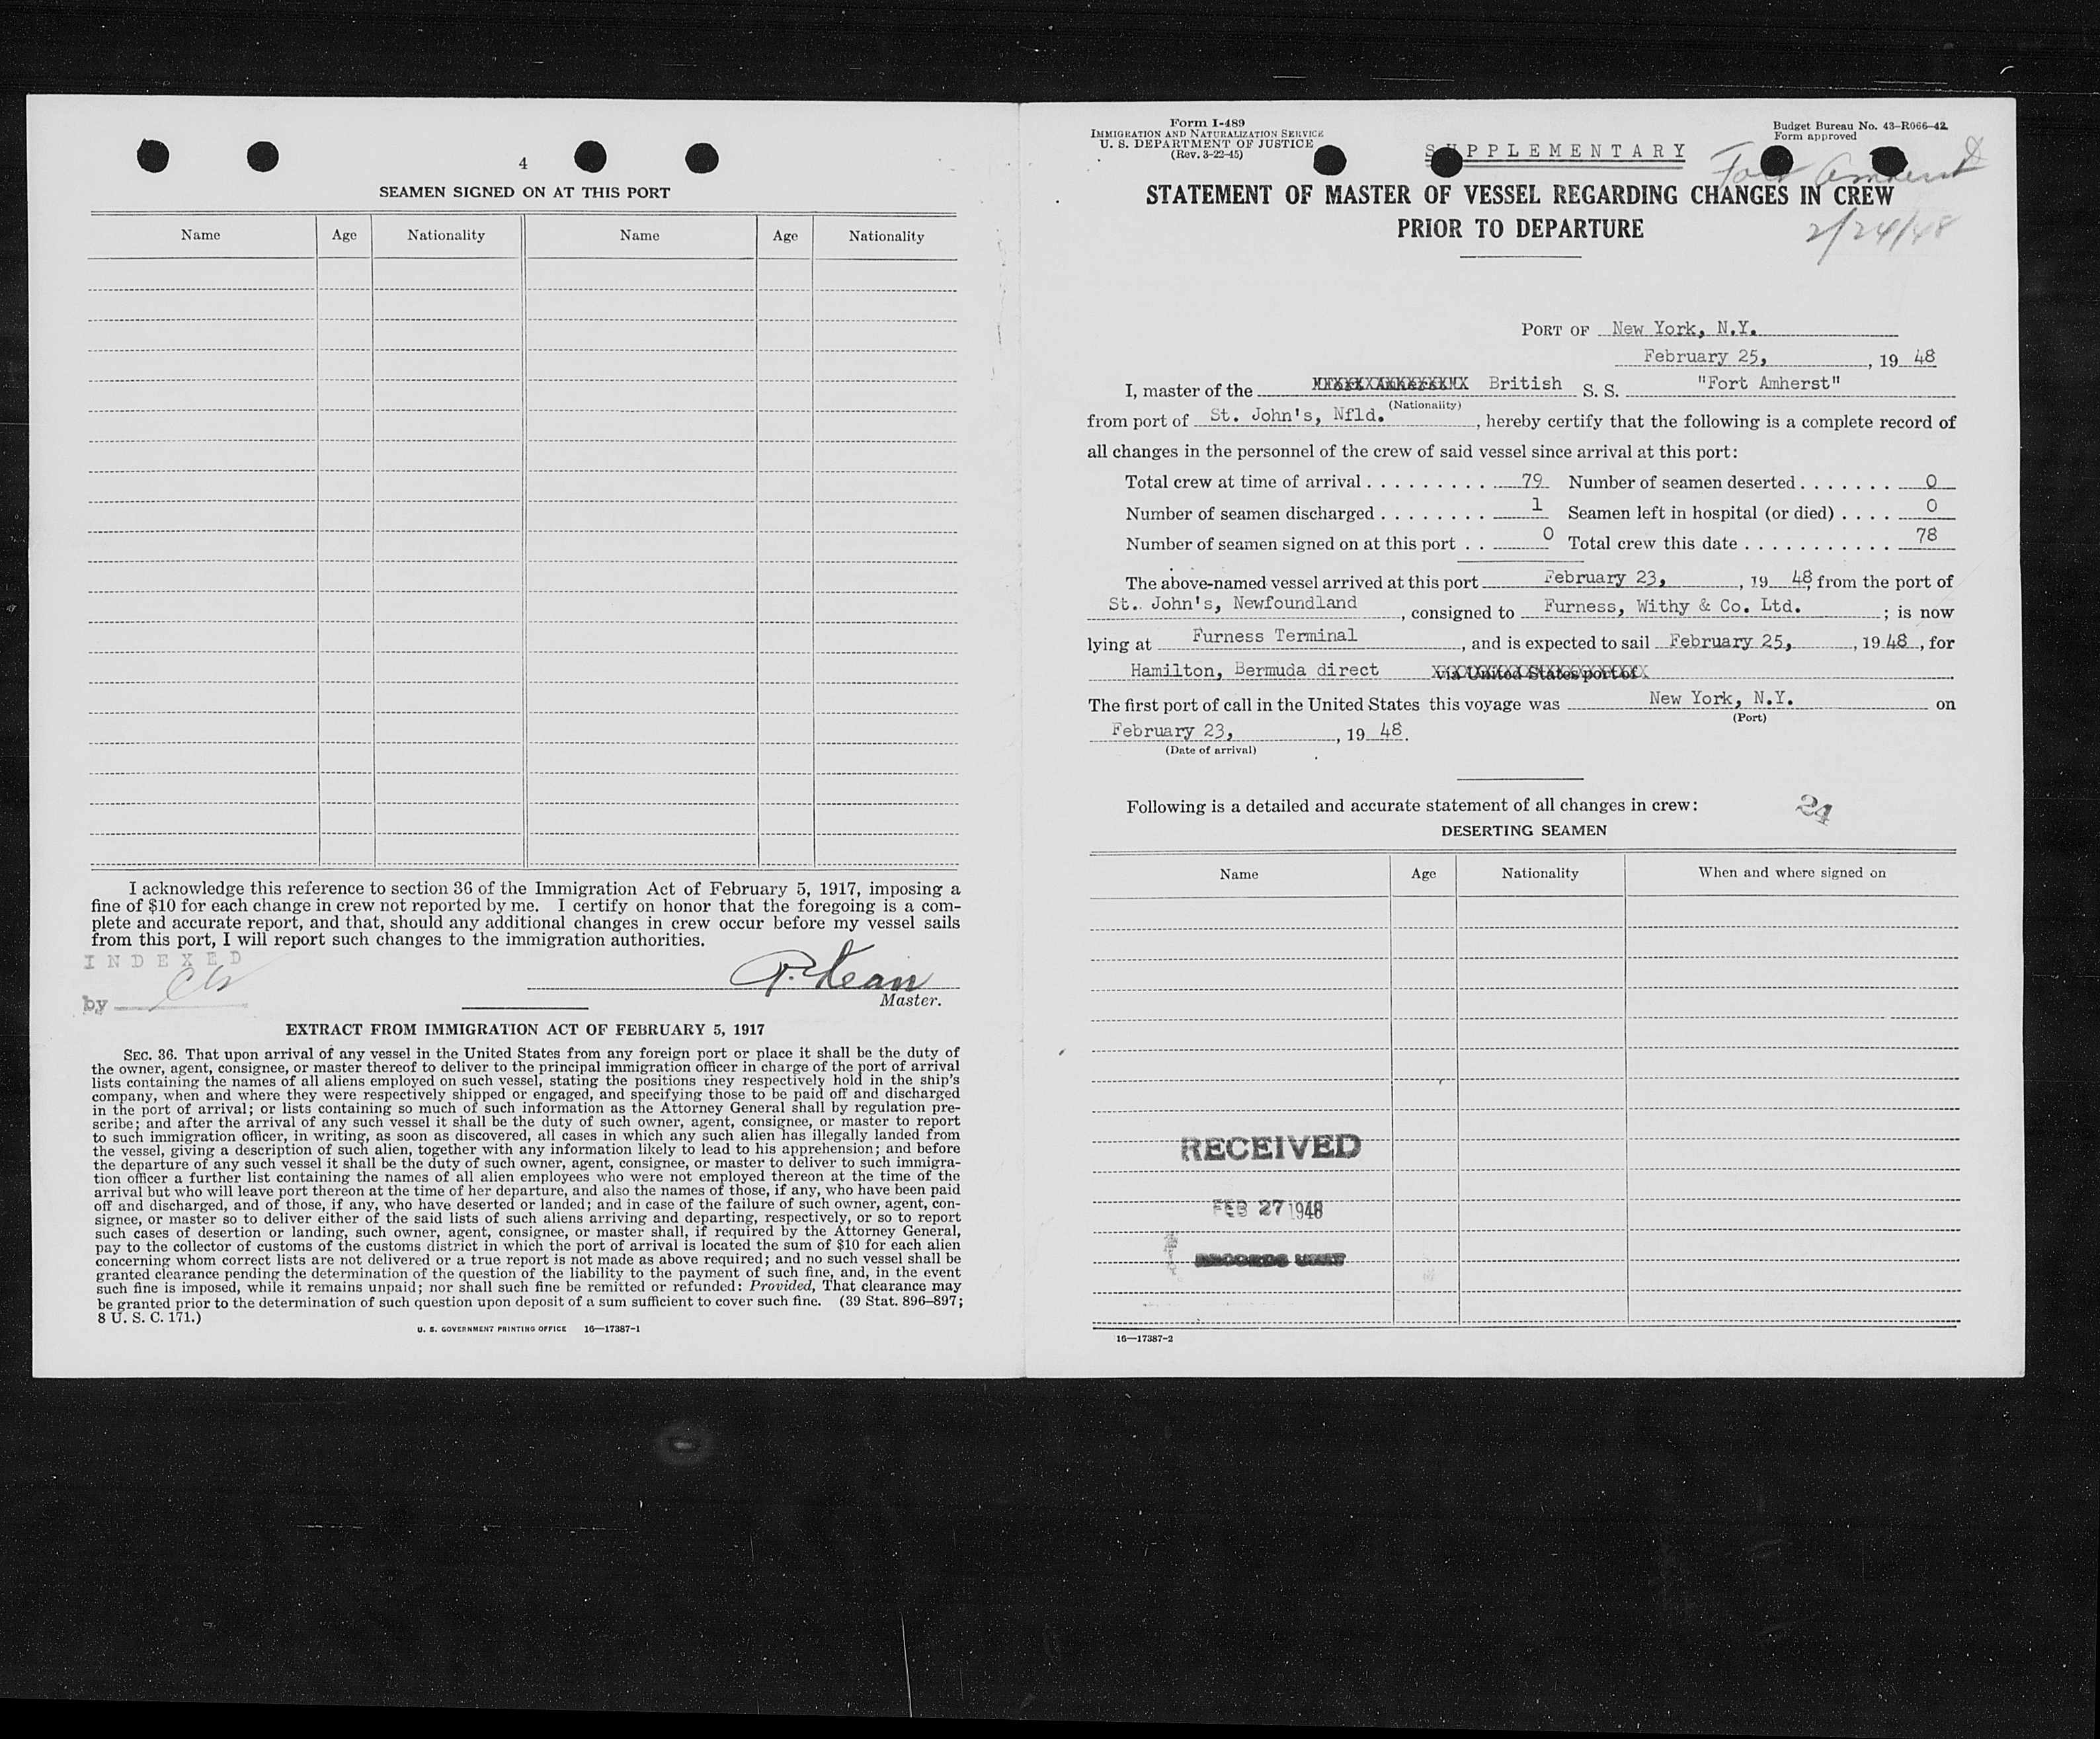 4
SEAMEN SIGNED ON AT THIS PORT
Name Age Nationality Name Age Nationality
I acknowledge this reference to section 36 of the Immigration Act of February 5, 1917, imposing a
fine of $10 for each change in crew not reported by me. I certify on honor that the foregoing is a com-
plete and accurate report, and that, should any additional changes in crew occur before my vessel sails
from this port, I will report such changes to the immigration authorities.
INDEXED
by
R. Kean
Master.
EXTRACT FROM IMMIGRATION ACT OF FEBRUARY 5, 1917
SEC. 36. That upon arrival of any vessel in the United States from any foreign port or place it shall be the duty of
the owner, agent, consignee, or master thereof to deliver to the principal immigration officer in charge of the port of arrival
lists containing the names of all aliens employed on such vessel, stating the positions they respectively hold in the ship's
company, when and where they were respectively shipped or engaged, and specifying those to be paid off and discharged
in the port of arrival; or lists containing so much of such information as the Attorney General shall by regulation pre-
scribe; and after the arrival of any such vessel it shall be the duty of such owner, agent, consignee, or master to report
to such immigration officer, in writing, as soon as discovered, all cases in which any such alien has illegally landed from
the vessel, giving a description of such alien, together with any information likely to lead to his apprehension; and before
the departure of any such vessel it shall be the duty of such owner, agent, consignee, or master to deliver to such immigra-
tion officer a further list containing the names of all alien employees who were not employed thereon at the time of the
arrival but who will leave port thereon at the time of her departure, and also the names of those, if any, who have been paid
off and discharged, and of those, if any, who have deserted or landed; and in case of the failure of such owner, agent, con-
signee, or master so to deliver either of the said lists of such aliens arriving and departing, respectively, or so to report
such cases of desertion or landing, such owner, agent, consignee, or master shall, if required by the Attorney General,
pay to the collector of customs of the customs district in which the port of arrival is located the sum of $10 for each alien
concerning whom correct lists are not delivered or a true report is not made as above required; and no such vessel shall be
granted clearance pending the determination of the question of the liability to the payment of such fine, and, in the event
such fine is imposed, while it remains unpaid; nor shall such fine be remitted or refunded: Provided, That clearance may
be granted prior to the determination of such question upon deposit of a sum sufficient to cover such fine. (39 Stat. 896–897;
8 U. S. C. 171.)
U. S. GOVERNMENT PRINTING OFFICE 16—17387-1
Form I-489
IMMIGRATION AND NATURALIZATION SERVICE
U. S. DEPARTMENT OF JUSTICE
(Rev. 3-22-45)
Budget Bureau No. 43-R066-42
Form approved
SUPPLEMENTARY
Fort Amherst
STATEMENT OF MASTER OF VESSEL REGARDING CHANGES IN CREW
PRIOR TO DEPARTURE
2/24/48
PORT OF New York, N.Y.
February 25, , 19 48
I, master of the British S. S. "Fort Amherst"
(Nationality)
from port of St. John's, Nfld. , hereby certify that the following is a complete record of
all changes in the personnel of the crew of said vessel since arrival at this port:
Total crew at time of arrival . . . . . . . . . 79 Number of seamen deserted . . . . . . . 0
Number of seamen discharged . . . . . . . . 1 Seamen left in hospital (or died) . . . . 0
Number of seamen signed on at this port . . 0 Total crew this date . . . . . . . . . . . 78
The above-named vessel arrived at this port February 23, , 19 48, from the port of
St. John's, Newfoundland , consigned to Furness, Withy & Co. Ltd. ; is now
lying at Furness Terminal , and is expected to sail February 25, , 19 48 , for
Hamilton, Bermuda direct via United States port of
The first port of call in the United States this voyage was New York, N.Y. on
(Port)
February 23, , 19 48.
(Date of arrival)
Following is a detailed and accurate statement of all changes in crew:
24
DESERTING SEAMEN
Name Age Nationality When and where signed on
RECEIVED
FEB 27 1948
RECORDS UNIT
16—17387-2